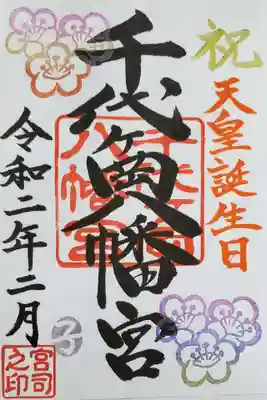 祝
天皇誕生日
千代ヶ岡八幡宮
令和二年二月
宮司之印